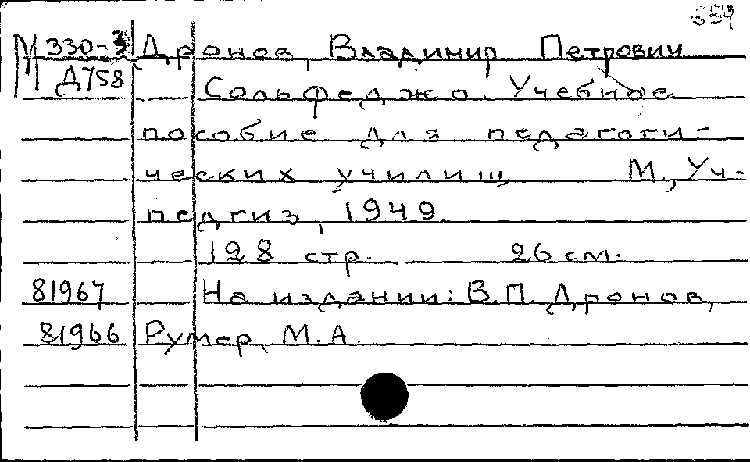 654
М 330-3 Дронов, Владимир Петрович
Д758 Сольфеджо. Учебное
пособие для педагоги-
ческих училищ М., Уч-
педгиз, 1949.
128 стр. 26 см.
81967 На издании: В.П. Дронов,
81966 Румер, М.А.